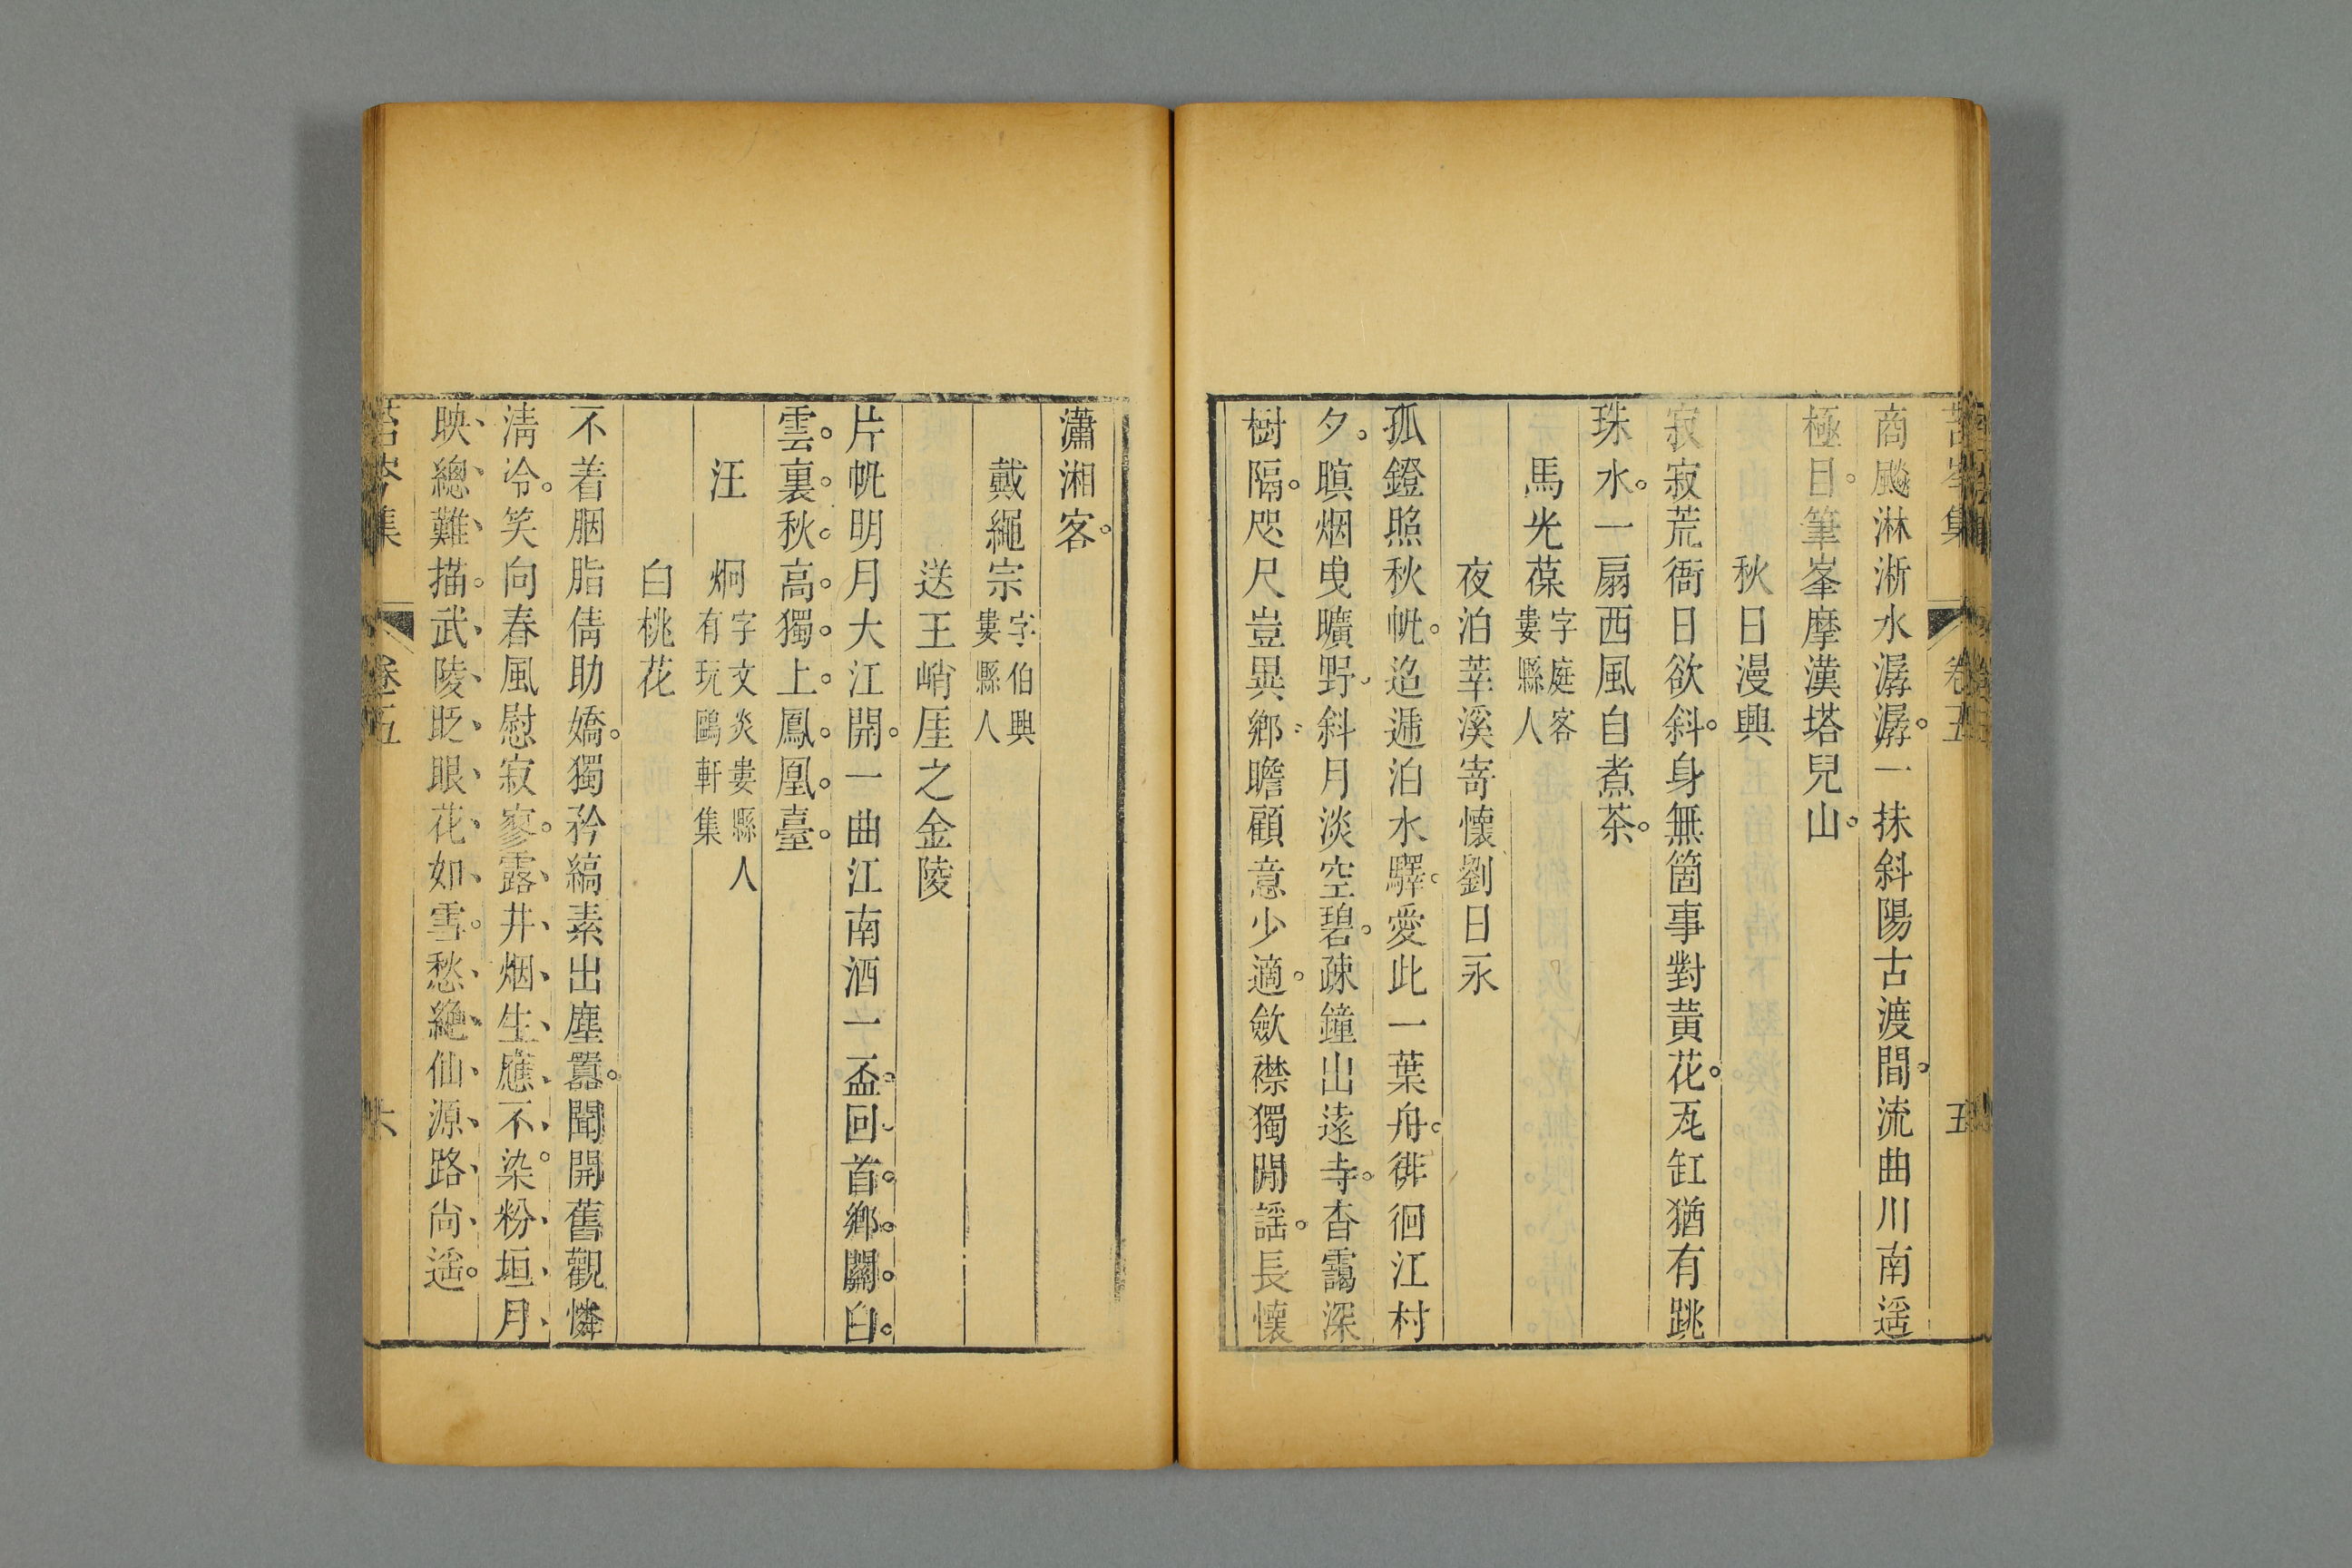 苔岑集 卷五 五
商颷淋淅水潺潺。一抹斜陽古渡間。流曲川南遥
極目。筆峯摩漢塔兒山。
秋日漫興
寂寂荒衙日欲斜。身無箇事對黃花。瓦缸猶有跳
珠水。一扇西風自煮茶。
馬光葆 字庭客婁縣人
夜泊莘溪寄懷劉日永
孤鐙照秋帆。迨遞泊水驛。愛此一葉舟。徘徊江村
夕。暝烟曳曠野。斜月淡空碧。疎鐘出遠寺。杳靄深
樹隔。咫尺豈異鄉。瞻顧意少適。斂襟獨閒謡。長懷
瀟湘客。
戴繩宗 字伯興婁縣人
送王峭厓之金陵
片帆明月大江開。一曲江南酒一盃。回首鄉關白
雲裏。秋高獨上鳳凰臺。
汪炯 字文炎婁縣人有玩鷗軒集
白桃花
不着胭脂倩助嬌。獨矜縞素出塵囂。聞開舊觀憐
淸冷。笑向春風慰寂寥。露井烟生應不染。粉垣月
映總難描。武陵眨眼花如雪。愁絶仙源路尙遥。
苔岑集 卷五 六